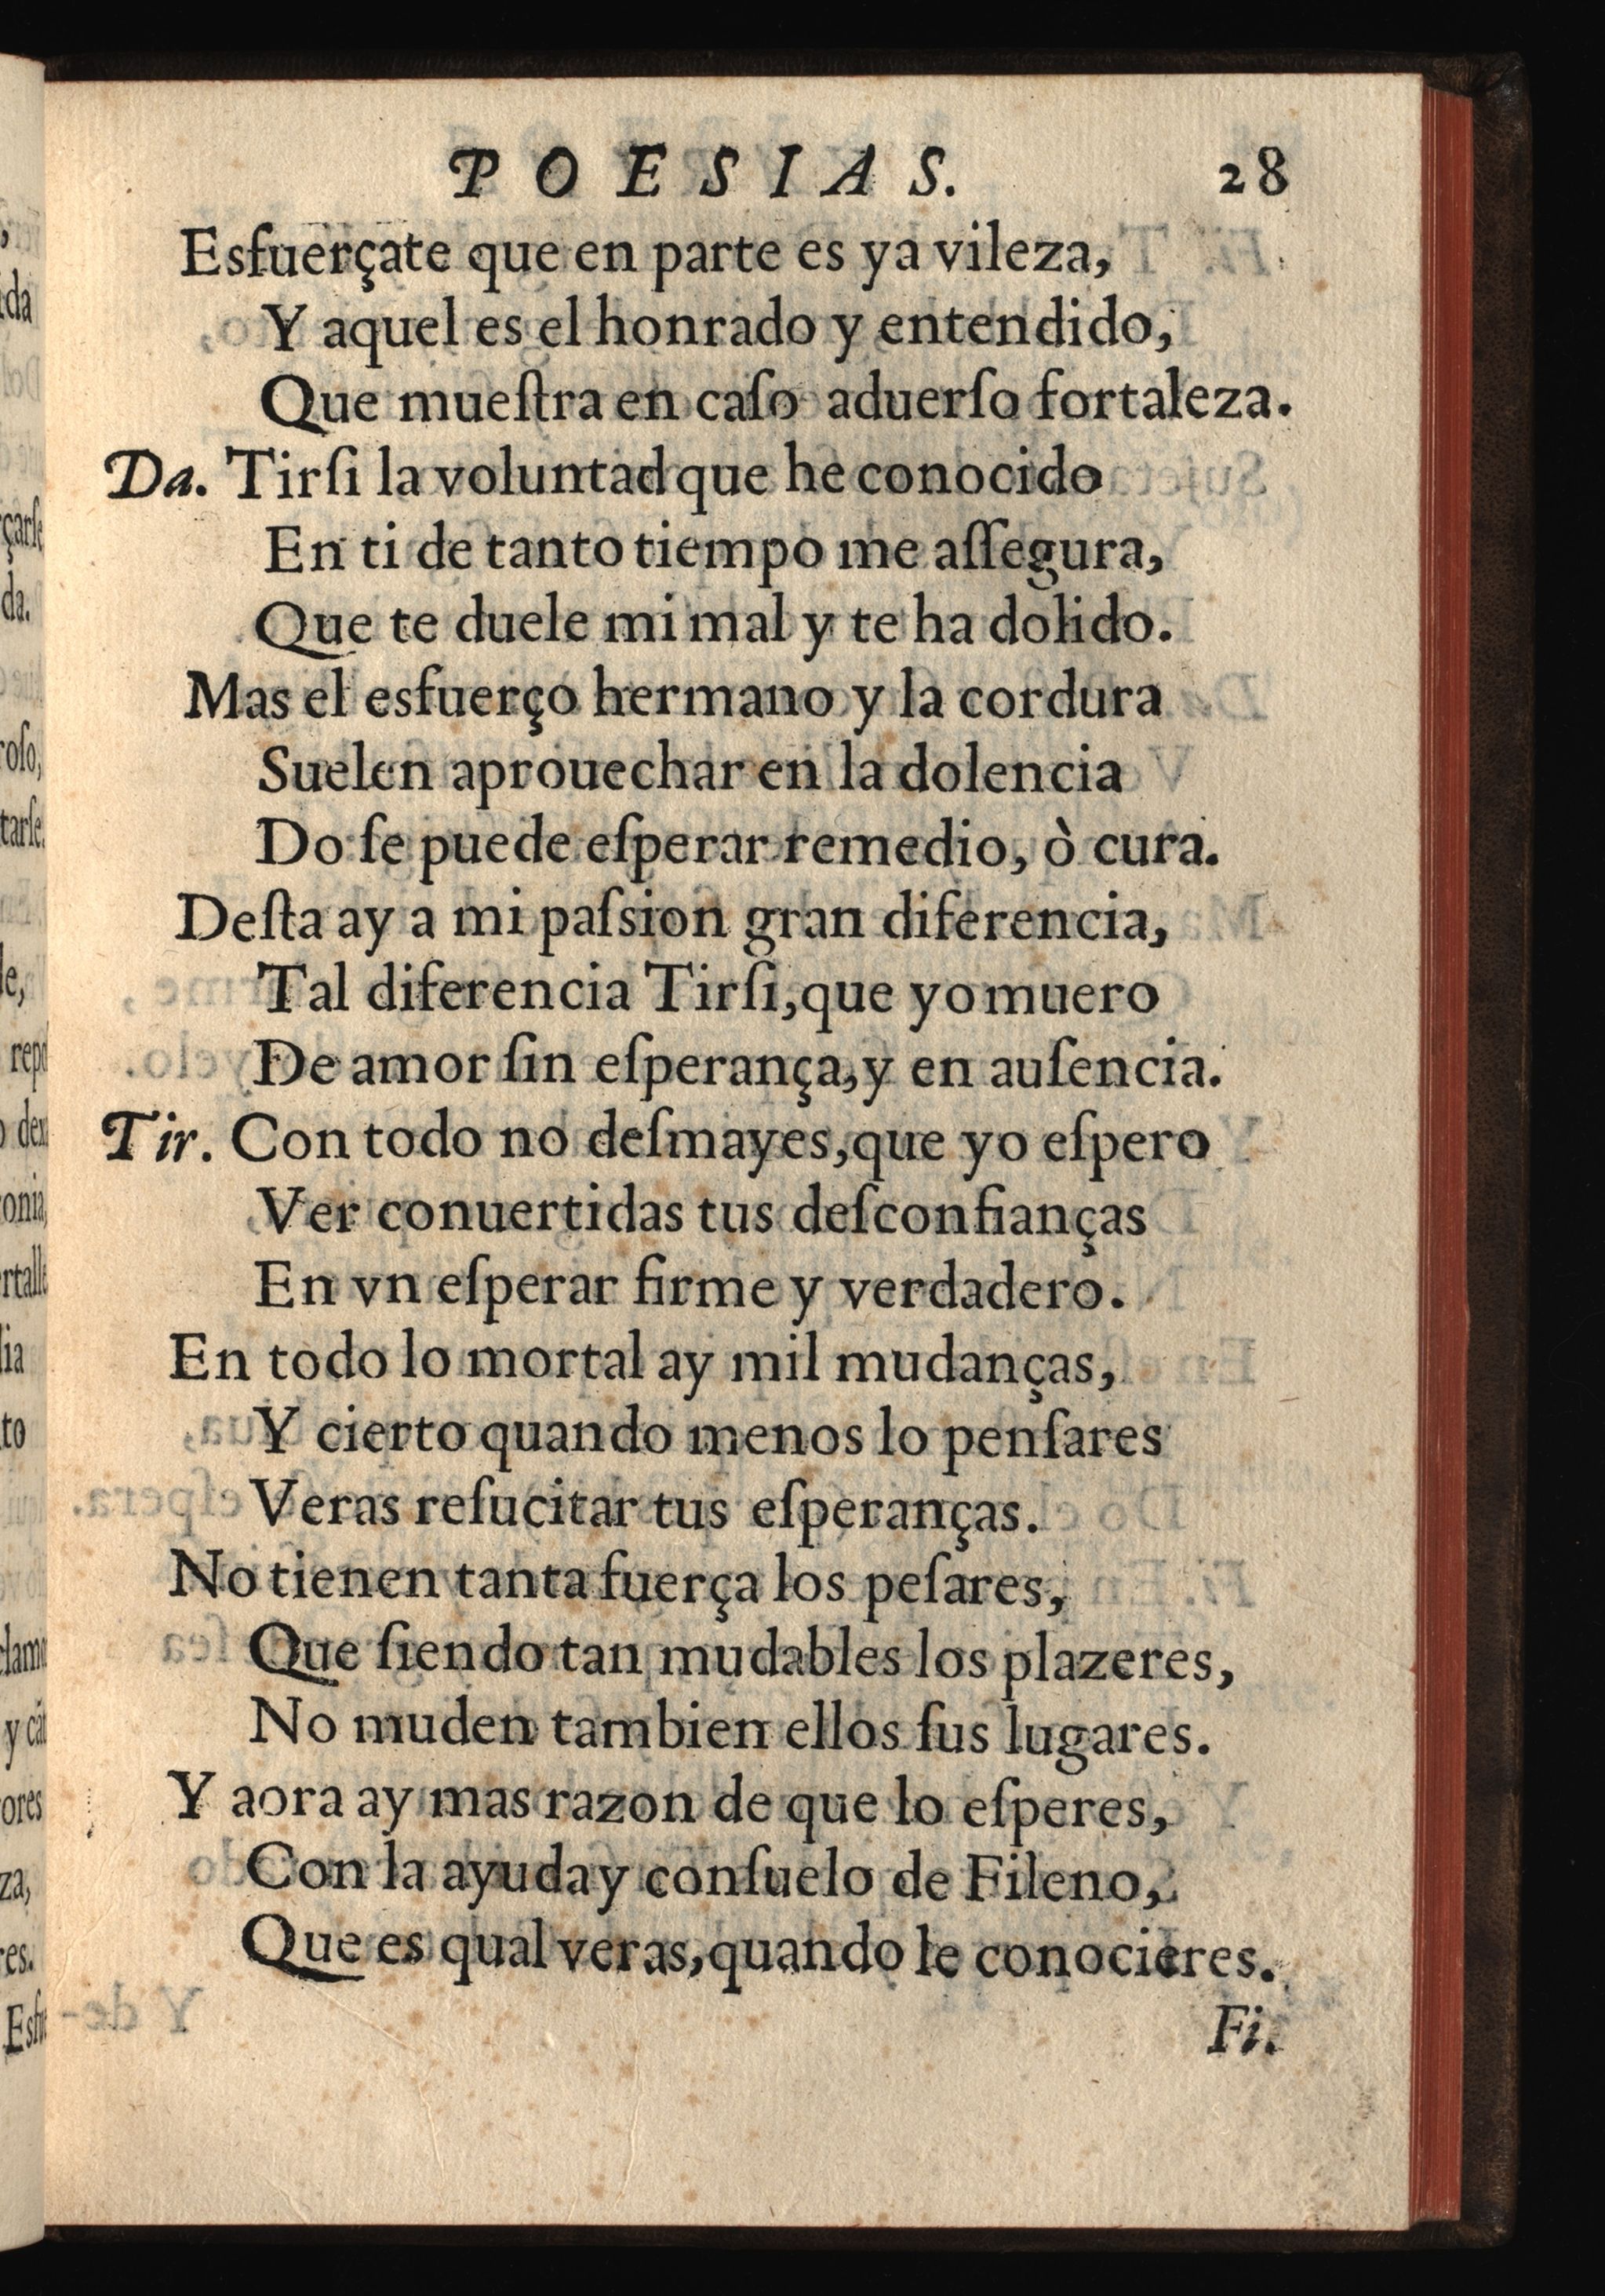 POESIAS. 28
Esfuerçate que en parte es ya vileza,
Y aquel es el honrado y entendido,
Que mueſtra en caſo aduerſo fortaleza.
Da. Tirſi la voluntad que he conocido
En ti de tanto tiempo me aſſegura,
Que te duele mi mal y te ha dolido.
Mas el esfuerço hermano y la cordura
Suelen aprouechar en la dolencia
Do ſe puede eſperar remedio, ò cura.
Deſta ay a mi paſsion gran diferencia,
Tal diferencia Tirſi, que yo muero
De amor ſin eſperança, y en auſencia.
Tir. Con todo no deſmayes, que yo eſpero
Ver conuertidas tus deſconfianças
En vn eſperar firme y verdadero.
En todo lo mortal ay mil mudanças,
Y cierto quando menos lo penſares
Veras reſucitar tus eſperanças.
No tienen tanta fuerça los peſares,
Que ſiendo tan mudables los plazeres,
No muden tambien ellos ſus lugares.
Y aora ay mas razon de que lo eſperes,
Con la ayuda y conſuelo de Fileno,
Que es qual veras, quando le conocieres.
Fi.